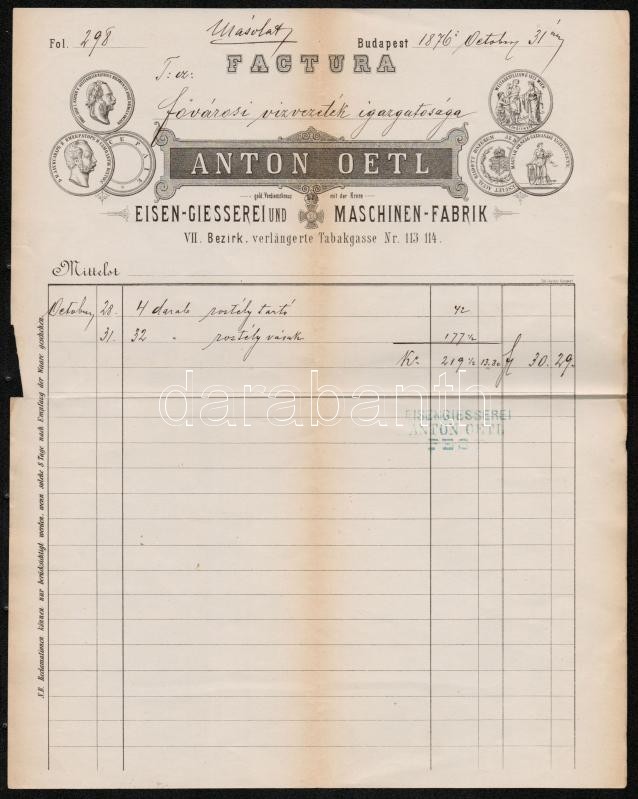 Fol. 298 Másolat Budapest 1876 October 31
FACTURA
T. cz.
fővárosi vizvezeték igazgatosága
ANTON OETL
gold. Verdienstkreuz mit der Krone
EISEN-GIESSEREI UND MASCHINEN-FABRIK
VII. Bezirk, verlängerte Tabakgasse Nr. 113 114.
Mittelst
October 28. 4 darab rostély tartó 42
31. 32 " rostély vasak 177 1/2
Ko 219 1/2 13.80 f 30.29.
EISENGIESSEREI
ANTON OETL
PES
N.B. Reclamationen können nur berücksichtigt werden, wenn solche 8 Tage nach Empfang der Waare geschehen.
darabanth.com